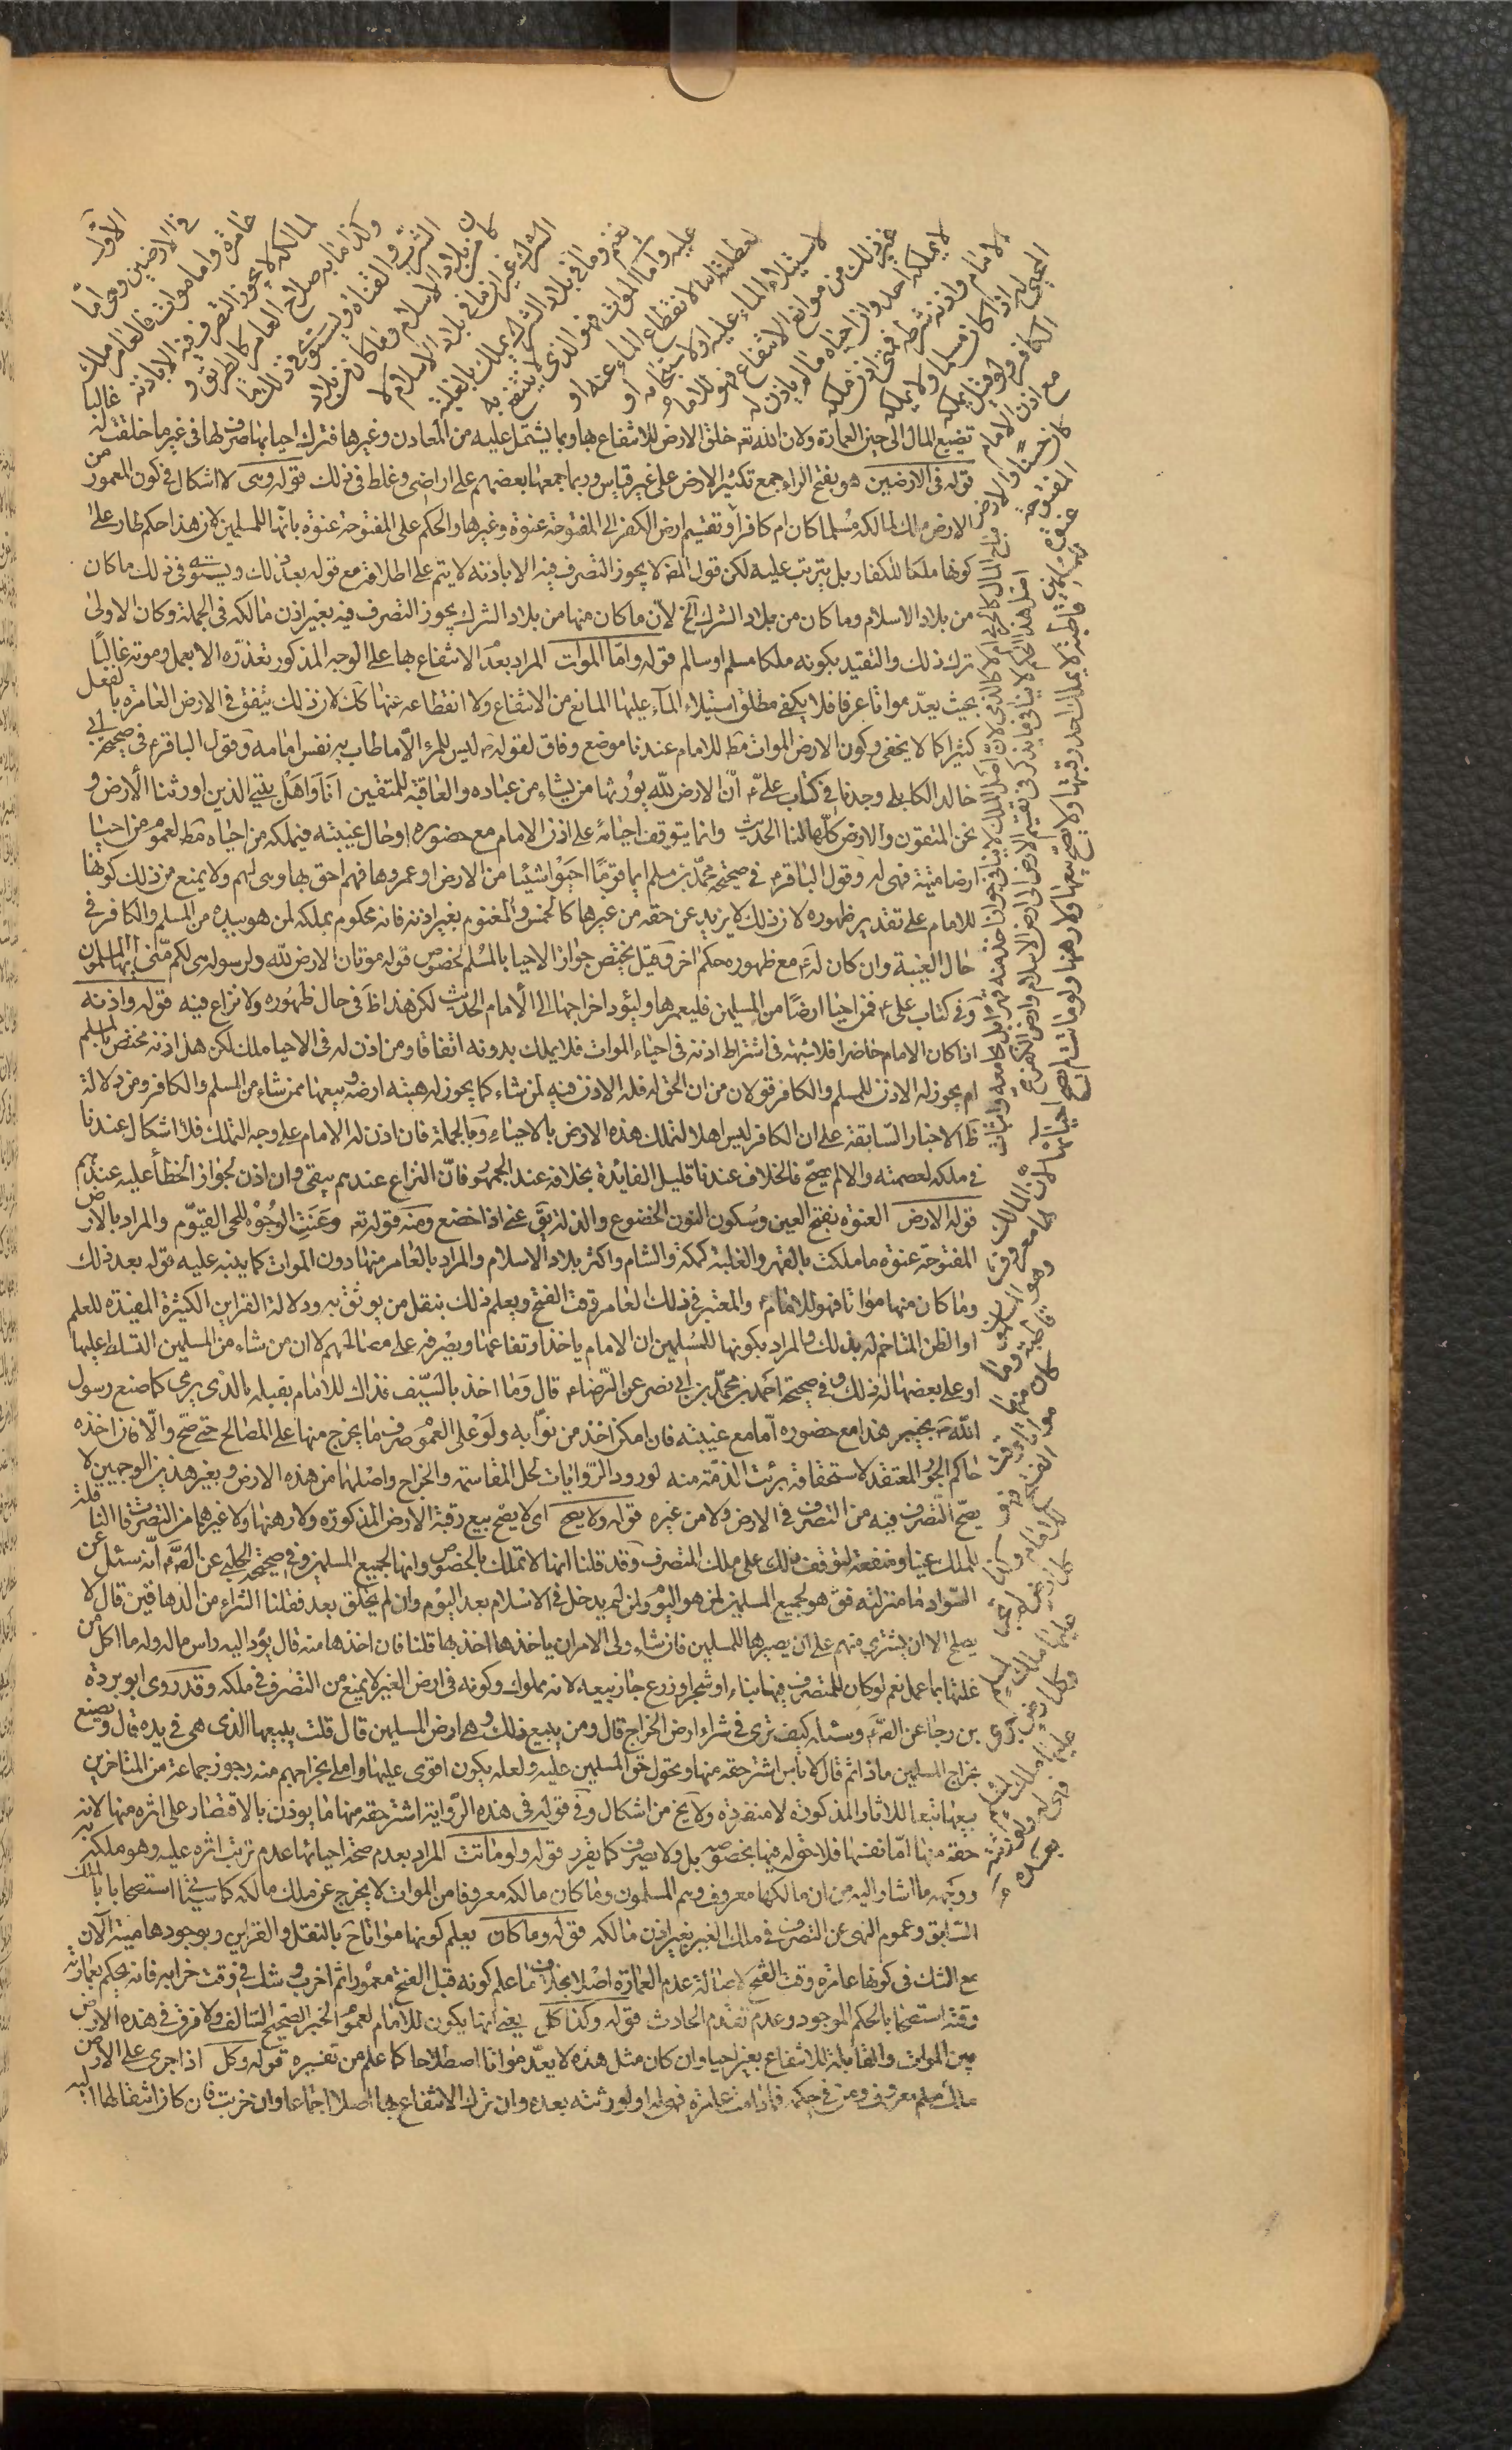 الأوّل
في الارضين وهي امّا
عامرة وامّا موات فالعامر ملك
لمالكه لا يجوز التصرف فيه الا باذنه
وكذا ما به صلاح العامر كالطريق و
الشرب والقناة ويستوي في ذلك ما
كان من بلاد الاسلام وما كان من بلاد
الشرك غير ان ما في بلاد الاسلام لا
يغنم وما في بلاد الشرك يملك بالغلبة
عليه وامّا الموات فهو الذي لا ينتفع به
لعطلته اما لانقطاع الماء عنه او
لاستيلاء الماء عليه او لاستيجامه او
غير ذلك من موانع الانتفاع فهو للامام ع
لا يملكه احد وان احياه ما لم ياذن له
الامام واذنه شرط فمتى اذن ملكه
المحيي له اذا كان مسلما ولا يملكه
الكافر ولو قيل يملكه
مع اذن الامام
كان حسنا والارض
المفتوحة
عنوة للمسلمين قاطبة لا يملك احد رقبتها ولا يصح بيعها ولا رهنها ولو ماتت لم يصح احياؤها لان المالك لها معروف وهو المسلمون قاطبة وما كان منها مواتا وقت الفتح فهو للامام ع وكذا كل ارض لم يجر عليها ملك لمسلم وكل ارض جرى عليها ملك لمسلم فهي له ولورثته بعده
تضييع المال الى حين العمارة ولان الله تع خلق الارض للانتفاع بها وبما يشتمل عليه من المعادن وغيرها فترك احيائها صرف لها في غير ما خلقت له
قوله في الارضين هو بفتح الراء جمع تكثير الارض على غير قياس وربما جمعها بعضهم على اراضي وغلط في ذلك قوله وهي لا اشكال في كون المعمور من
الارض ملك لمالكه مسلما كان ام كافرا وتقسيم ارض الكفر الى المفتوحة عنوة وغيرها والحكم على المفتوحة عنوة بانها للمسلمين لان هذا حكم طار على
كونها ملكا للكفار بل يترتب عليه لكن قول المص لا يجوز التصرف فيه الا باذنه لا يتم على اطلاقه مع قوله بعد ذلك ويستوي في ذلك ما كان
من بلاد الاسلام وما كان من بلاد الشرك آلخ لانّ ما كان منها من بلاد الشرك يجوز التصرف فيه بغير اذن مالكه في الجملة وكان الاولى
ترك ذلك والتقييد بكونه ملكا مسلم او سالم قوله وامّا الموات المراد بعد الانتفاع بها على الوجه المذكور تعذّره الا بعمل ومؤنه غالبا
بحيث يعدّ مواتا عرفا فلا يكفي مطلق استيلاء المآء عليها المانع من الانتفاع ولا انقطاعه عنها كك لان ذلك يتفق في الارض العامرة بالفعل
كثيرا كما لا يخفى وكون الارض الموات مط للامام عندنا موضع وفاق لقوله ص ليس للمرء الّا ما طاب به نفس امامه وقول الباقر ع في صحيحة ابي
خالد الكابلي وجدنا في كتاب علي ع انّ الارض للّه يورثها من يشاء من عباده والعاقبة للمتقين انا واهل بيتي الذين اورثنا الارض و
نحن المتقون والارض كلّها لنا الحديث وانما يتوقف احيائه على اذن الامام مع حضوره اوحال غيبته فيملكه من احياه مط لعموم من احيا
ارضا ميتة فهي له وقول الباقر ع في صحيحة محمّد بن مسلم ايما قومًا احيوا شيئا من الارض او عمروها فهم احق بها وهي لهم ولا يمنع من ذلك كونها
للامام على تقدير ظهوره لان ذلك لا يزيد عن حقه من غيرها كالخمس والمغنوم بغير اذنه فانه محكوم بملكه لمن هو بيده من المسلم والكافر في
حال الغيبة وان كان له ع مع ظهوره حكم اخر وقيل يختص جواز الاحيا بالمسلم لخصوص قوله موتان الارض للّه ولرسوله هي لكم منّي ايها المسلمون
وفي كتاب علي ع فمن احيا ارضًا من المسلمين فليعمرها وليؤد اخراجها الى الامام الحديث لكن هذا ظ في حال ظهوره ولا نزاع فيه قوله واذنه
اذا كان الامام حاضرا فلا شبهة في اشتراط اذنه في احياء الموات فلا يملك بدونه اتفاقا ومن اذن له في الاحيا ملك لكن هل اذنه مختص بالمسلم
ام يجوز له الاذن للمسلم والكافر قولان من ان الحق له فله الاذن فيه لمن شاء كما يجوز له هبته ارضه وبيعها ممن شاء من المسلم والكافر ومن دلالة
ظ الاخبار السّابقة على ان الكافر ليس اهلا لتملك هذه الارض بالاحياء وبالجملة فان اذن له الامام على وجه التملك فلا اشكال عندنا
في ملكه لعصمته والا لم يصحّ فالخلاف عندنا قليل الفايدة بخلافه عند الجمهور فانّ النزاع عندهم يبقى وان اذن لجواز الخطأ عليه عندهم
قوله الارض العنوة بفتح العين وسكون النون الخضوع والذلة يق عنى اذا خضع ومنه قوله تع وعنت الوجوه للحي القيّوم والمراد بالارض
المفتوحة عنوة ما ملكت بالقهر والغلبة كمكة والشام واكثر بلاد الاسلام والمراد بالعامر منها دون الموات كما ينبه عليه قوله بعد ذلك
وما كان منها مواتا فهو للامام ع والمعتبر في ذلك العامر وقت الفتح ويعلم ذلك بنقل من يوثق به ودلالة القراين الكثيرة المفيدة للعلم
او الظن المتاخم له بذلك والمراد بكونها للمسلمين ان الامام ياخذ ارتفاعها ويصرفه على مصالحهم لا ان من شاء من المسلمين التسلط عليها
او على بعضها له ذلك وفي صحيحة احمد بن محمّد بن ابي نصر عن الرّضا ع قال وما اخذ بالسّيف فذاك للامام يقبله بالذي يرى كما صنع رسول
اللّه ص بخيبر هذا مع حضوره امّا مع غيبته فان امكن اخذ من نوّابه ولو على العموم صرف ما يخرج منها على المصالح حتى صحّ والّا فان اخذه
حاكم الجور المعتقد لاستحقاقه برئت الذمّة منه لورود الرّوايات بحل المقاسمه والخراج واصلها من هذه الارض وبغير هذين الوجهين لا
يصحّ التّصرف فيه من التصرف في الارض ولا من غيره قوله ولا يصح اي لا يصح بيع رقبة الارض المذكورة ولا رهنها ولا غيرها من التصرفات الناقلة
للملك عينا ومنفعة لتوقف ذلك على ملك المتصرف وقد قلنا انها لا تملك بالخصوص وانها لجميع المسلمين وفي صحيحة الحلبي عن الص ع انّه سئل عن
السّواد ما منزلته فق هو لجميع المسلمين لمن هو اليوم ولمن لم يدخل في الاسلام بعد اليوم وان لم يخلق بعد فقلنا الشراء من الدهاقين قال لا
يصلح الا ان يشتري منهم على ان يصيرها للمسلمين فان شاء ولي الامر ان ياخذها اخذها قلنا فان اخذها منه قال يؤد اليه راس ماله وله ما اكل من
غلتها بما عمل نعم لو كان للمتصرف فيها بناء او شجر او زرع جاز بيعه لانه مملوك وكونه في ارض الغير لا يمنع من التصرف في ملكه وقد روى ابو بردة
بن رجا عن الص ع وسئله كيف ترى في شراء ارض الخراج قال ومن يبيع ذلك وهي ارض المسلمين قال قلت يبيعها الذي هي في يده قال ويصنع
بخراج المسلمين ماذا ثم قال لا بأس اشتر حقه منها ويحول حق المسلمين عليه ولعله يكون اقوى عليها واملى بخراجهم منه وجوز جماعة من المتاخرين
بيعها تبعا للاثار المذكورة لا منفردة ولا يخ من اشكال وفي قوله في هذه الرّواية اشتر حقه منها ما يؤذن بالاقتصار على اثره منها لانه
حقه منها امّا نفسها فلا حق له فيها بخصوصه بل ولا بصرف كما يقرر قوله ولو ماتت المراد بعدم صحة احيائها عدم ترتب اثره عليه وهو ملكه
ووجهه ما اشار اليه من ان مالكها معروف وهم المسلمون وما كان مالكه معروفا من الموات لا يخرج عن ملك مالكه كما سيأتي استصحابا بالملك
السّابق وعموم النهي عن التصرف في ملك الغير بغير اذن مالكه قوله وما كان يعلم كونها مواتا ح بالنقل والقراين وبوجودها ميتة الآن
مع الشك في كونها عامرة وقت الفتح لاصالة عدم العمارة اصلا بخلاف ما علم كونه قبل الفتح معمورا ثم اخرب وشك في وقت خرابه فانه يحكم بعمارته
وقته استصحابا بالحكم الموجود وعدم تقدم الحادث قوله وكذا كل يعني انها يكون للامام لعموم الخبر الصّحيح السّالف ولا فرق في هذه الارض
بين الموات والقابلة للانتفاع بغير احيا وان كان مثل هذه لا يعدّ مواتا اصطلاحا كما علم من تفسيره قوله وكل اذا جرى على الارض
ملك مسلم معروف ومن في حكمه فما دامت عامرة فهي له او لورثته بعده وان ترك الانتفاع بها اصلا اجماعا وان خربت فان كان انتقالها اليه